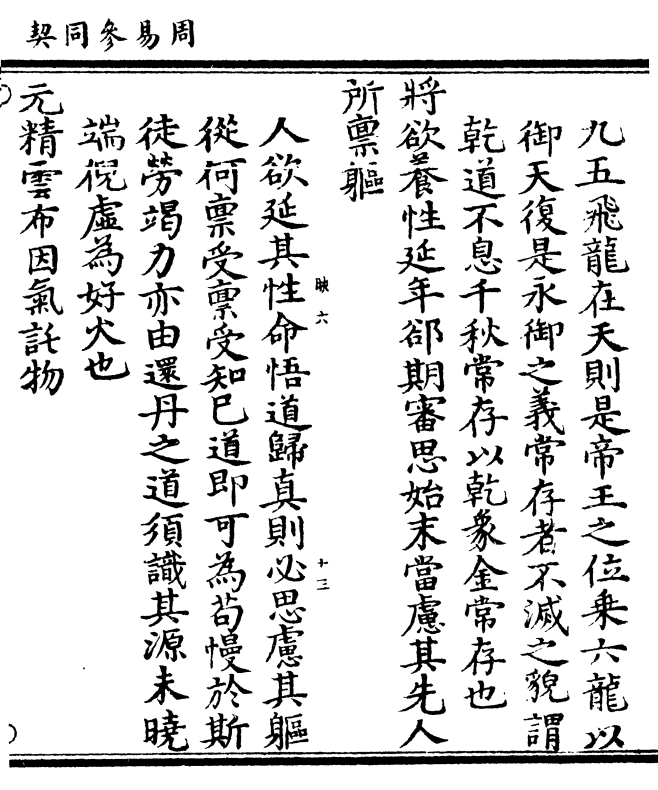 周易參同契
九五飛龍在天則是帝王之位乗六龍以
御天復是永御之義常存者不滅之貌謂
乾道不息千秋常存以乾象金常存也
將欲養性延年郤期審思始末當慮其先人
所禀軀
人欲延其性命悟道歸真則必思慮其軀
映六
十三
從何禀受禀受知巳道即可為苟慢於斯
徒勞竭力亦由還丹之道須識其源未曉
端倪虛為好火也
元精雲布因氣託物